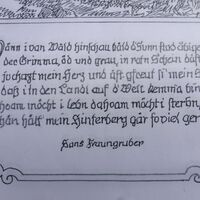 Wänn i van Wald hinschau bäld d'Sunn stad äbigeht
dee Grimma, öd und grau, in rotn Schein
jucházt mein Herz und üft gfreut Ji mein
daß i in den Landl auf d'Welt kemma bin
dahoam möcht i lebn dahoam möcht i sterbn,
hält mein Hinterberg går soviel gern
Hans Fraungruber